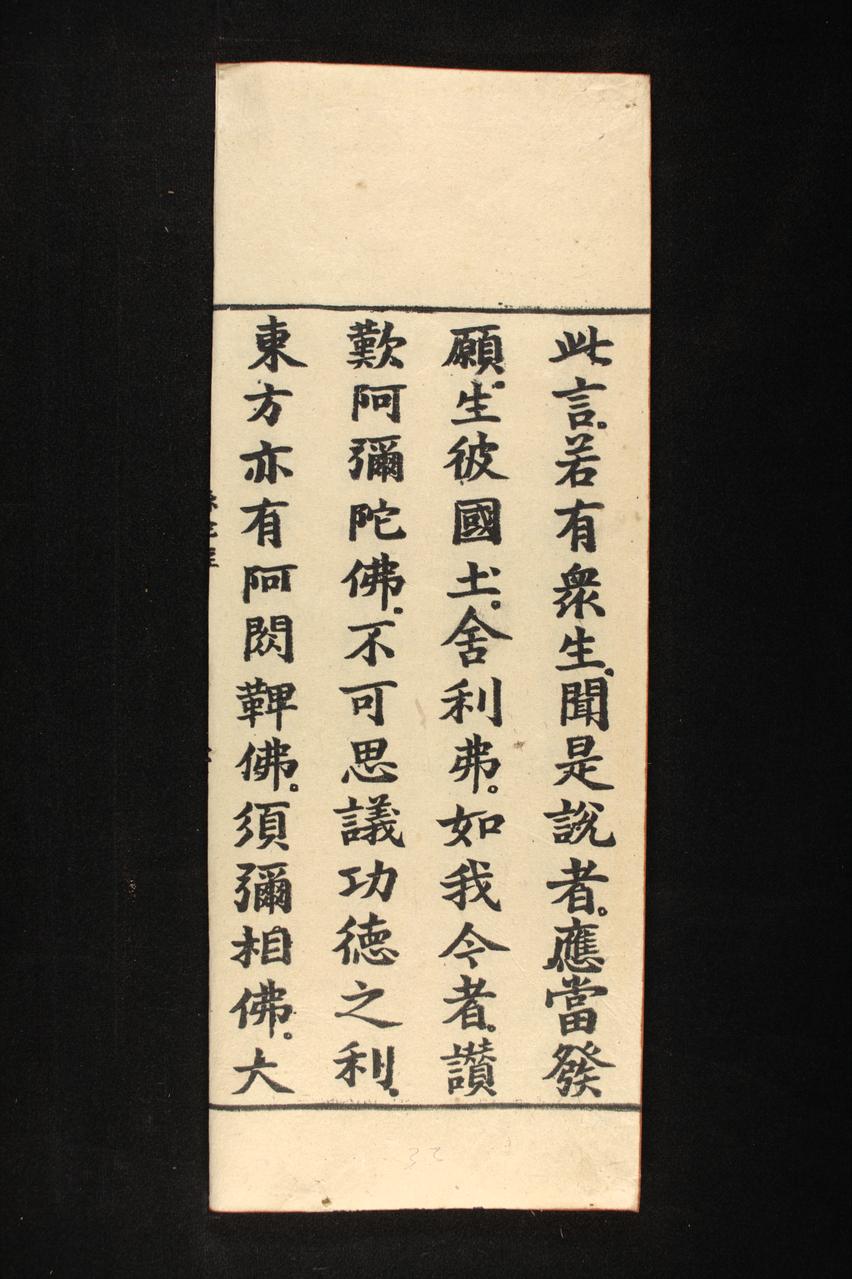 此言。若有衆生。聞是說者。應當發
願。生彼國土。舍利弗。如我今者。讚
歎阿彌陀佛。不可思議功德之利。
東方亦有阿閦鞞佛。須彌相佛。大
32